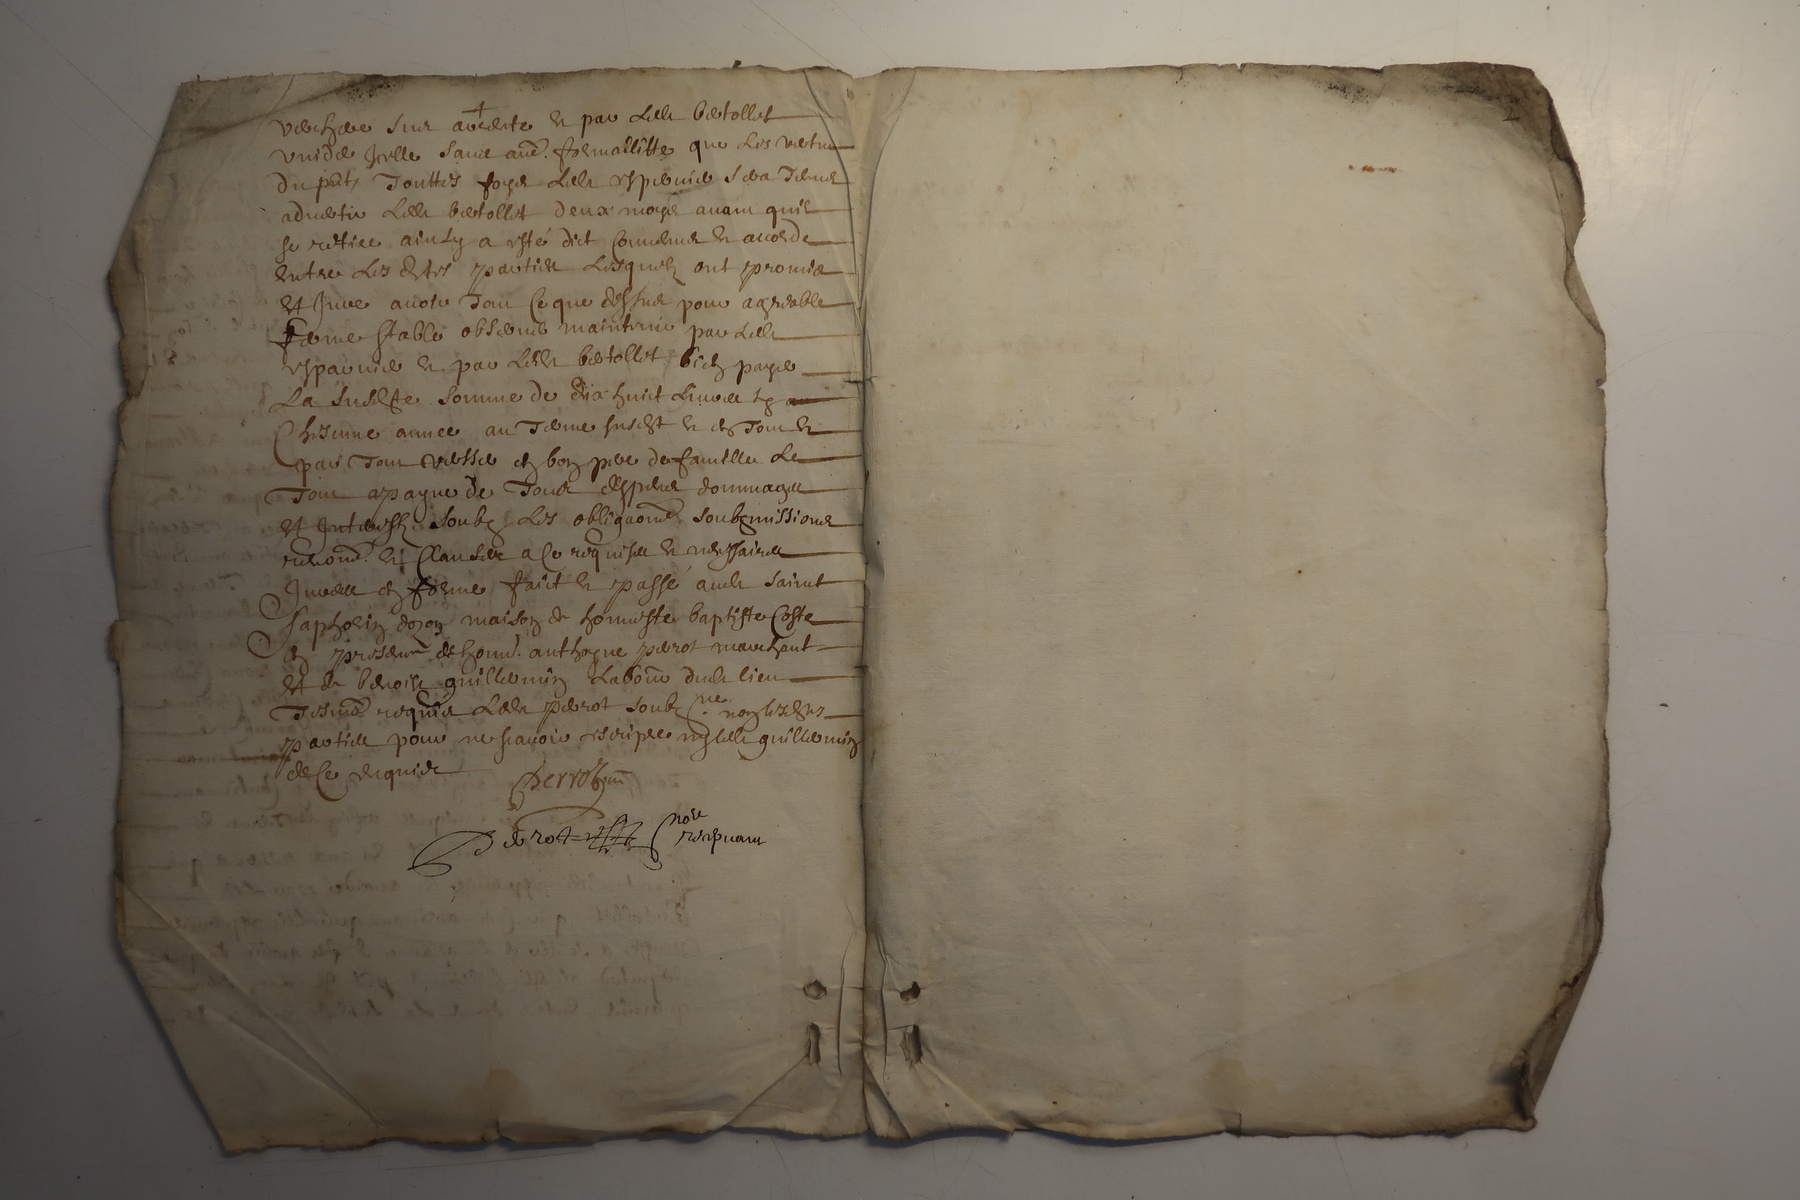 sur et par led bertollet
vuider Icelle sans autre formallitte que les vertus
du pnt, Touttes foys led sera Tenus
advertir led bertollet deux moys avant quil
se retire ainsy a esté dict convenus et accorde
entre les dtes parties lesquels ont promis
et Jure avoir Tout ce que dessus pour agreable
ferme stable observer maintenir par led
et par led bertollet bien payer
La susdte somme de dix huict livres
Chacune annee au Terme susdt et en Tout et
par Tout verser en bon pere de famille Le
Tout a payne de Tous despens dommages
et Interests soubz les obligaons soubzmissions
renons et clauses a ce requises et nessaires
Jurees en forme faict et passé aud saint
saphorin dozon maison de honneste baptiste Coste
en presence de honn. anthoyne perrot marchant
et de benoist guillermin Labour dud lieu
Tesmes requis led perrot soubz ne non lesdtes
parties pour ne scavoir escripre ny led guillermin
de ce enquis Perrot
Perrot nore recepvant
2